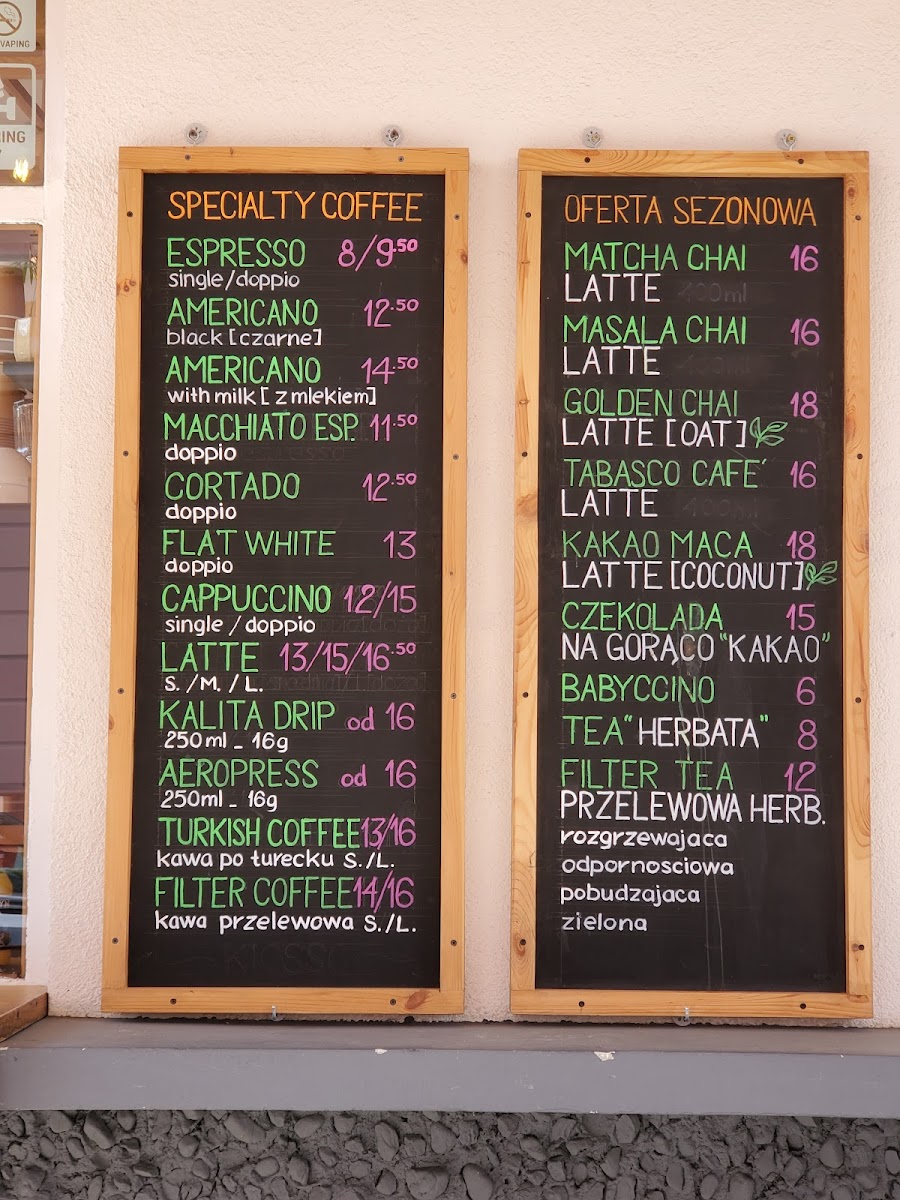 VAPING
RING
SPECIALTY COFFEE
ESPRESSO 8/9.50
single/doppio
AMERICANO 12.50
black [czarne]
AMERICANO 14.50
with milk [z mlekiem]
MACCHIATO ESP. 11.50
doppio
CORTADO 12.50
doppio
FLAT WHITE 13
doppio
CAPPUCCINO 12/15
single / doppio
LATTE 13/15/16.50
S. / M. / L.
KALITA DRIP od 16
250ml - 16g
AEROPRESS od 16
250ml - 16g
TURKISH COFFEE 13/16
kawa po turecku S./L.
FILTER COFFEE 14/16
kawa przelewowa S./L.
OFERTA SEZONOWA
MATCHA CHAI 16
LATTE 400ml
MASALA CHAI 16
LATTE
GOLDEN CHAI 18
LATTE [OAT]
TABASCO CAFE´ 16
LATTE 400ml
KAKAO MACA 18
LATTE [COCONUT]
CZEKOLADA 15
NA GORĄCO "KAKAO"
BABYCCINO 6
TEA "HERBATA" 8
FILTER TEA 12
PRZELEWOWA HERB.
rozgrzewajaca
odpornosciowa
pobudzajaca
zielona